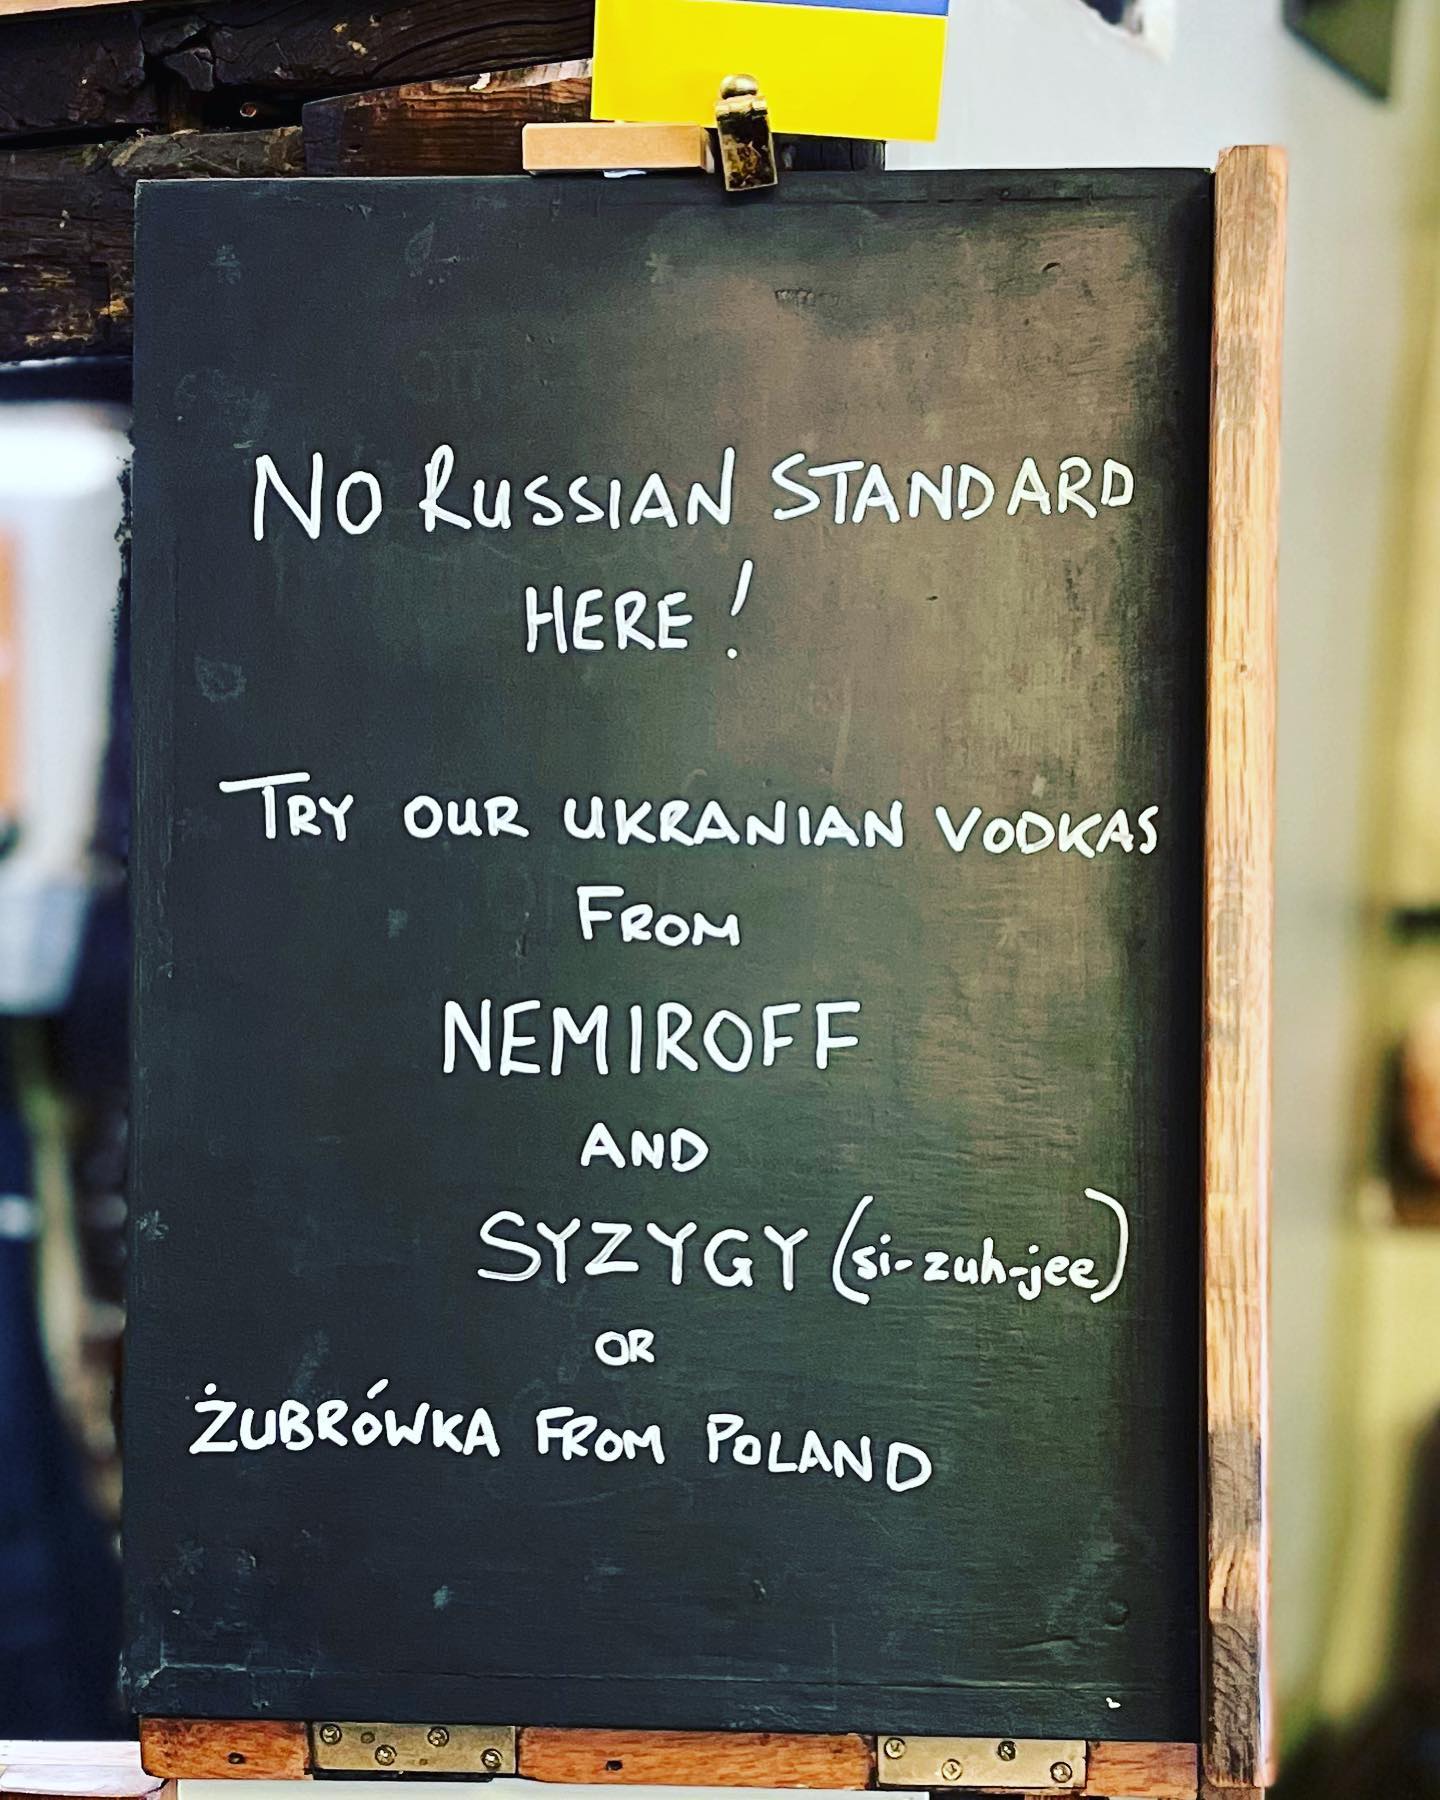 NO RUSSIAN STANDARD
HERE!
TRY OUR UKRANIAN VODKAS
FROM
NEMIROFF
AND
SYZYGY (si-zuh-jee)
OR
ŻUBRÓWKA FROM POLAND